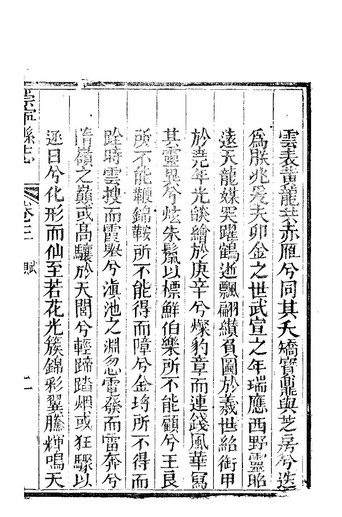 雲表黃龍共赤雁兮同其夭矯寶鼎與芝房兮迭
為朕兆爰夫卯金之世武宣之年瑞應西野靈昭
遠天龍媒哭躍鶴逝飄翩纘負圖於羲世紹銜甲
於堯年光燄繪於庚辛兮燦豹章而連錢風華寫
其靈異兮炫朱鬣以標鮮伯樂所不能顧兮王良
所不能鞭錦鞍所不能得而障兮金埒所不得而
跧時雲搜而霞舉兮滇池之淵忽而雷奔兮
隋嶺之巔或高驤於天閶兮輕蹄踏烟或狂驟以
逐日兮化形而仙至若花光簇錦彩翼騰輝鳴天
崇寧縣志 卷三 賦